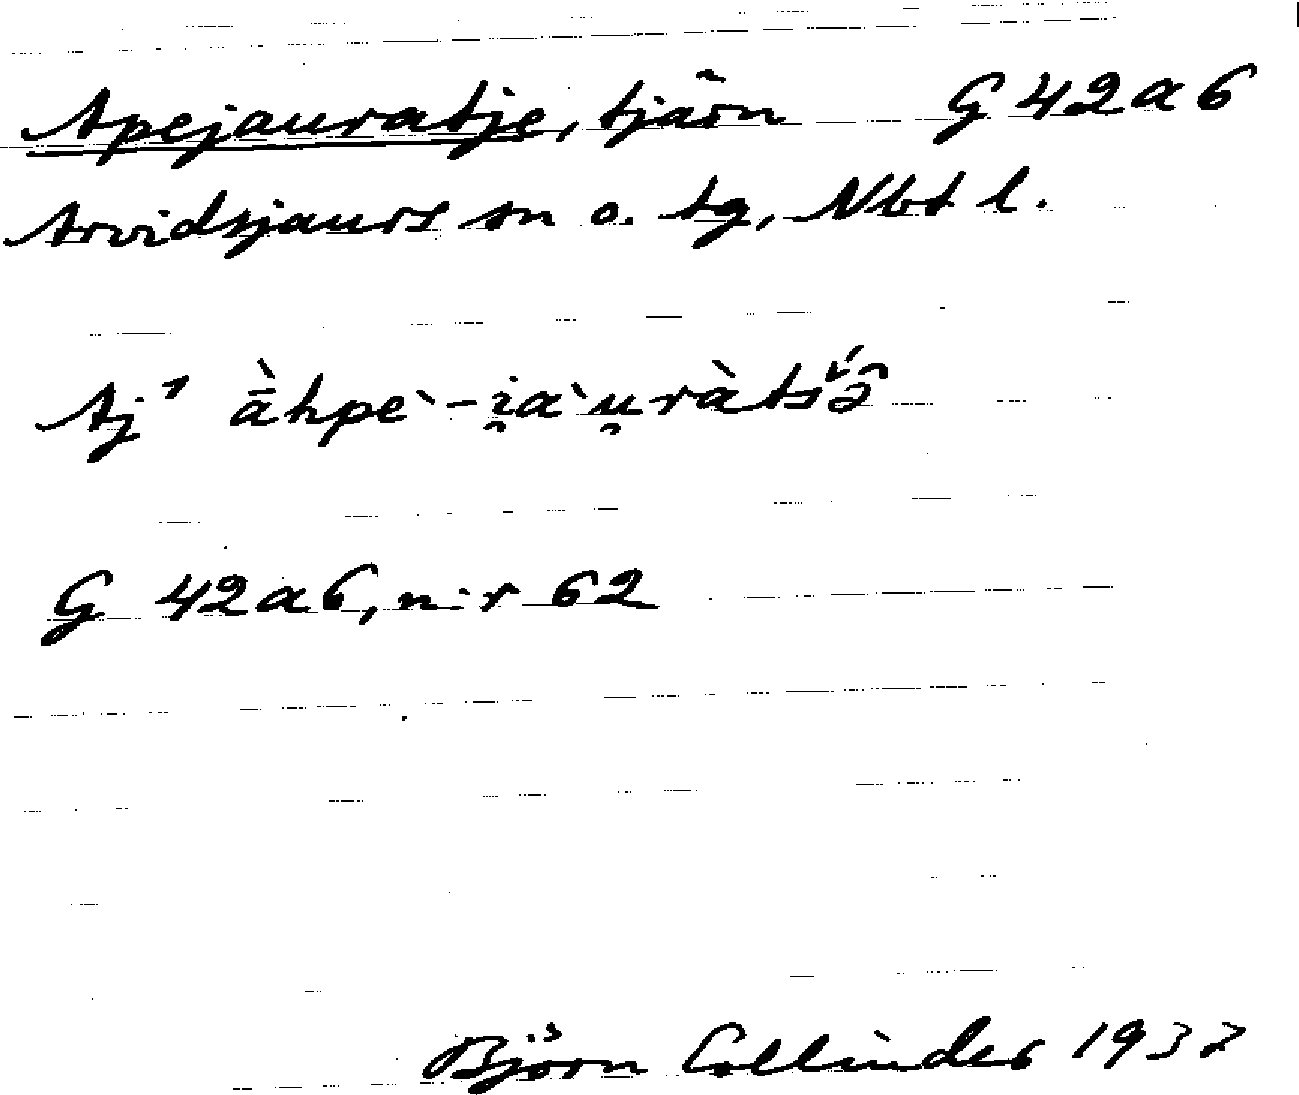 Apejauratje, tjärn G 42 a 6
Arvidsjaurs sn o. tg, Nbt l.
Aj¹ ā̀hpè-i̯a`u̯ràtš́ə̑
G 42 a 6, n:r 62
Björn Collinder 1937